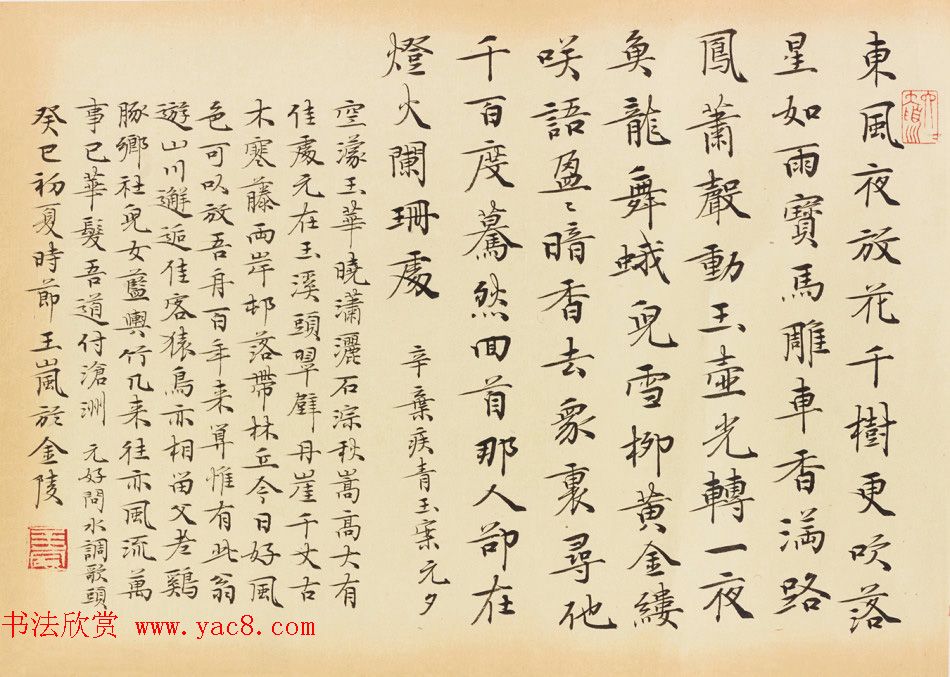 東風夜放花千樹更吹落
星如雨寶馬雕車香滿路
鳳蕭聲動玉壺光轉一夜
魚龍舞蛾兒雪柳黃金縷
咲語盈〻暗香去衆裏尋他
千百度驀然回首那人卻在
燈火闌珊處 辛棄疾青玉案元夕
空濛玉華曉瀟灑石淙秋嵩高大有
佳處元在玉溪頭翠壁丹崖千丈古
木寒藤兩岸邨落帶林丘今日好風
色可以放吾舟百年来算惟有此翁
遊山川邂逅佳客猿鳥亦相留父老鷄
豚鄉社兒女藍輿竹几来往亦風流萬
事已華髮吾道付滄洲 元好問水調歌頭
癸巳初夏時節王嵐於金陵
书法欣赏 www.yac8.com